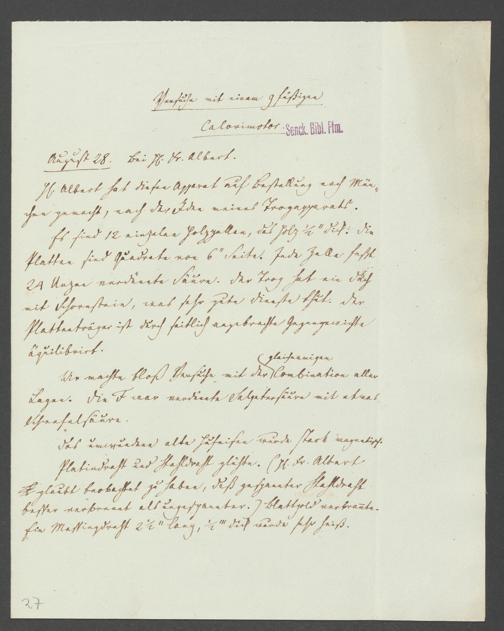 Versuche mit einem 9füßigen
Calorimotor. Senck. Bibl. Ffm.
August 28. bei H. Dr. Albert.
H. Albert hat diesen Apparat auf Bestellung nach Mün-
chen gemacht, nach der Idee meines Trogapparats.
Es sind 12 einzelne Holzzellen, das Holz ½" dick: die
Platten sind Quadrate von 6" Seite. Jede Zelle faßt
24 Unzen verdünnte Säure. Der Trog hat ein Dach
mit Schornstein, was sehr gute Dienste thut. Der
Plattenträger ist durch seitlich angebrachte Gegengewichte
äquilibrirt.
Wir machten bloß Versuche mit der gleichnamigen Combination aller
Lagen. Die F war verdünnte Salpetersäure mit etwas
Schwefelsäure.
Das umwundene alte Hufeisen wurde stark magnetisch.
Platindraht und Stahldraht glühte. (H. Dr. Albert
glaubt beobachtet zu haben, daß gespannter Stahldraht
besser verbrennt als ungespannter.) Blattgold verbrannte.
Ein Messingdraht 2½" lang, ½''' dick wurde sehr heiß.
27